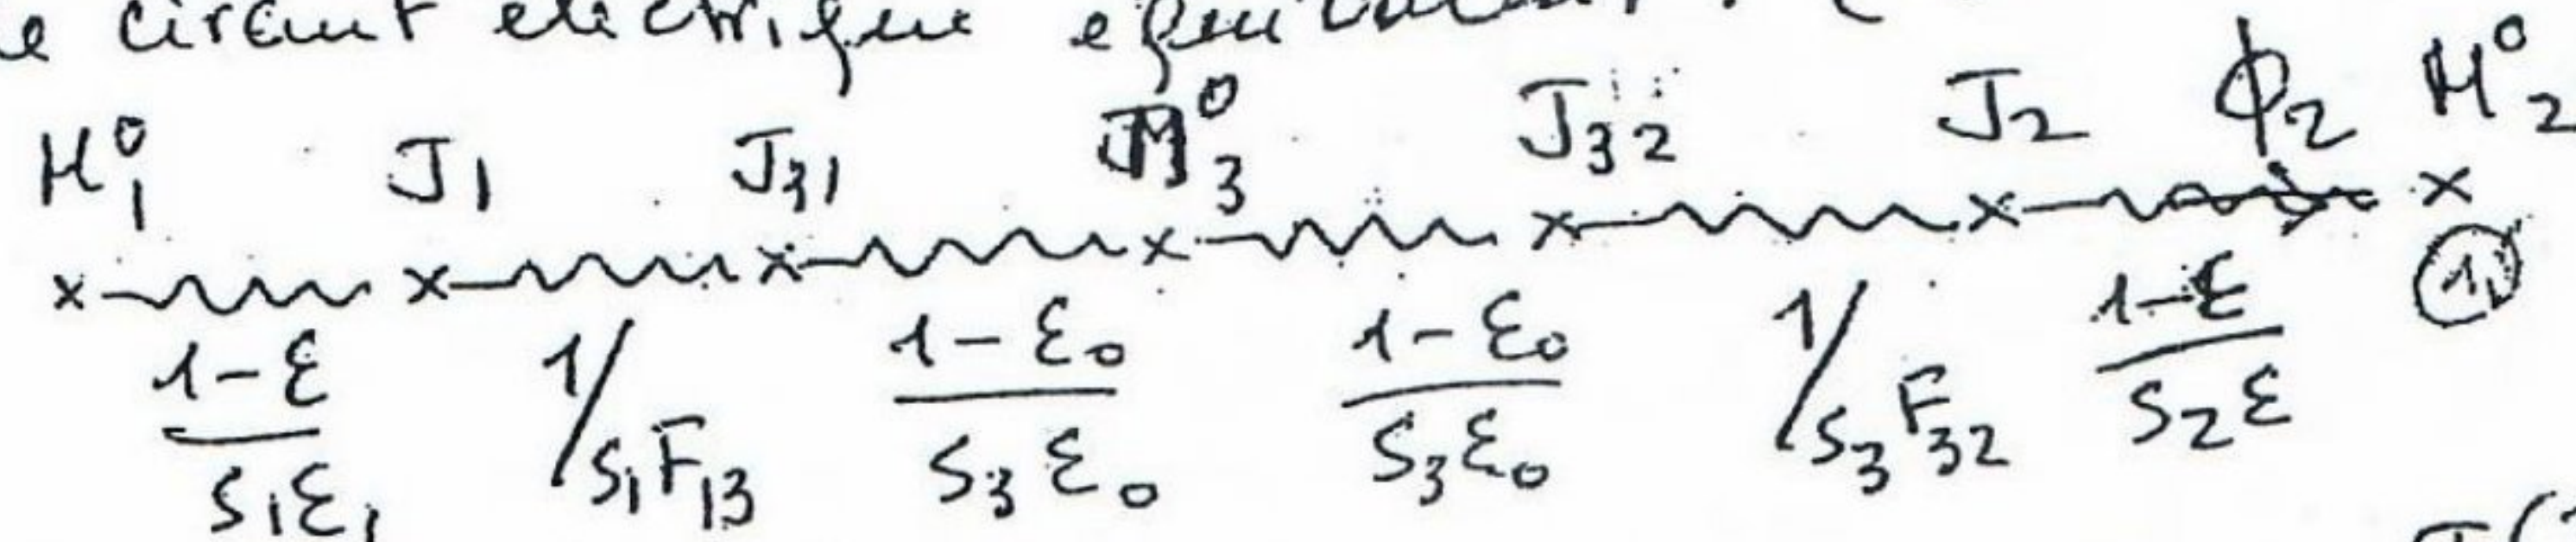 e circuit électrique équivalent
M₁⁰ J₁ J₃₁ M₃⁰ J₃₂ J₂ ϕ₂ M₂⁰
x x x x x x x
(1-ε)/(S₁ε₁) 1/S₁F₁₃ (1-ε₀)/(S₃ε₀) (1-ε₀)/(S₃ε₀) 1/S₃F₃₂ (1-ε)/(S₂ε) ①